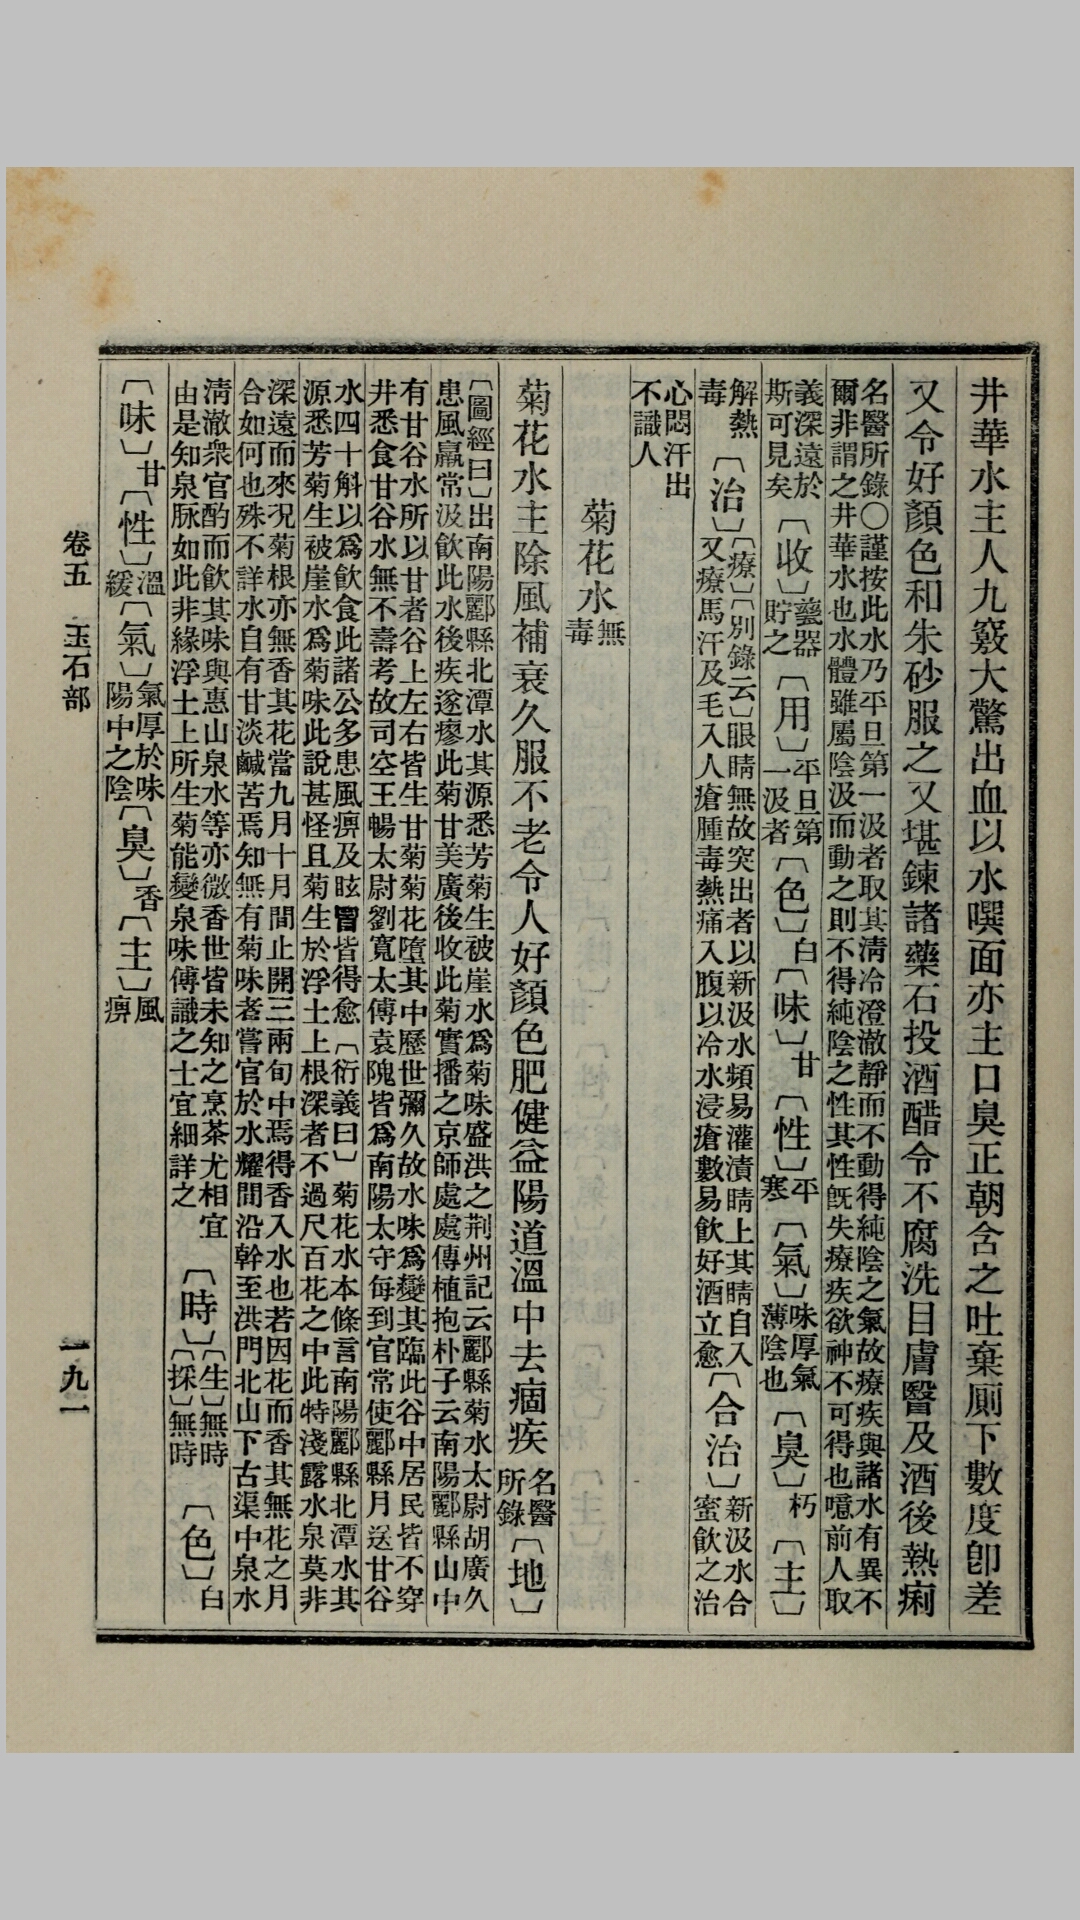 井華水主人九竅大驚出血以水噀面亦主口臭正朝含之吐棄厠下數度卽差
又令好顏色和朱砂服之又堪鍊諸藥石投酒醋令不腐洗目膚醫及酒後熱痢
名醫所錄〇謹按此水乃平旦第一汲者取其淸冷澄澈靜而不動得純陰之氣故療疾與諸水有異不
爾非謂之井華水也水體雖屬陰汲而動之則不得純陰之性其性旣失療疾欲神不可得也噫前人取
義深遠於
斯可見矣
〔收〕
甆器
貯之
〔用〕
平旦第
一汲者
〔色〕白〔味〕甘〔性〕
平
寒
〔氣〕
味厚氣
薄陰也
〔臭〕朽〔主〕
解熱
毒
〔治〕
〔療〕〔別錄云〕眼睛無故突出者以新汲水頻易灌漬睛上其睛自入
又療馬汗及毛入人瘡腫毒熱痛入腹以冷水浸瘡數易飮好酒立愈
〔合治〕
新汲水合
蜜飮之治
心悶汗出
不識人
菊花水
無
毒
菊花水主除風補衰久服不老令人好顏色肥健益陽道溫中去痼疾
名醫
所錄
〔地〕
〔圖經曰〕出南陽酈縣北潭水其源悉芳菊生被崖水爲菊味盛洪之荆州記云酈縣菊水太尉胡廣久
患風羸常汲飮此水後疾遂瘳此菊甘美廣後收此菊實播之京師處處傳植抱朴子云南陽酈縣山中
有甘谷水所以甘者谷上左右皆生甘菊菊花墮其中歷世彌久故水味爲變其臨此谷中居民皆不穿
井悉食甘谷水無不壽考故司空王暢太尉劉寬太傅袁隗皆爲南陽太守每到官常使酈縣月送甘谷
水四十斛以爲飮食此諸公多患風痹及眩冒皆得愈〔衍義曰〕菊花水本條言南陽酈縣北潭水其
源悉芳菊生被崖水爲菊味此說甚怪且菊生於浮土上根深者不過尺百花之中此特淺露水泉莫非
深遠而來況菊根亦無香其花當九月十月間止開三兩旬中焉得香入水也若因花而香其無花之月
合如何也殊不詳水自有甘淡鹹苦焉知無有菊味者嘗官於水耀間沿幹至洪門北山下古渠中泉水
淸澈衆官酌而飮其味與惠山泉水等亦微香世皆未知之烹茶尤相宜
由是知泉脉如此非緣浮土上所生菊能變泉味傅識之士宜細詳之
〔時〕
〔生〕無時
〔採〕無時
〔色〕白
〔味〕甘〔性〕
溫
緩
〔氣〕
氣厚於味
陽中之陰
〔臭〕香〔主〕
風
痹
卷五 玉石部
一九一